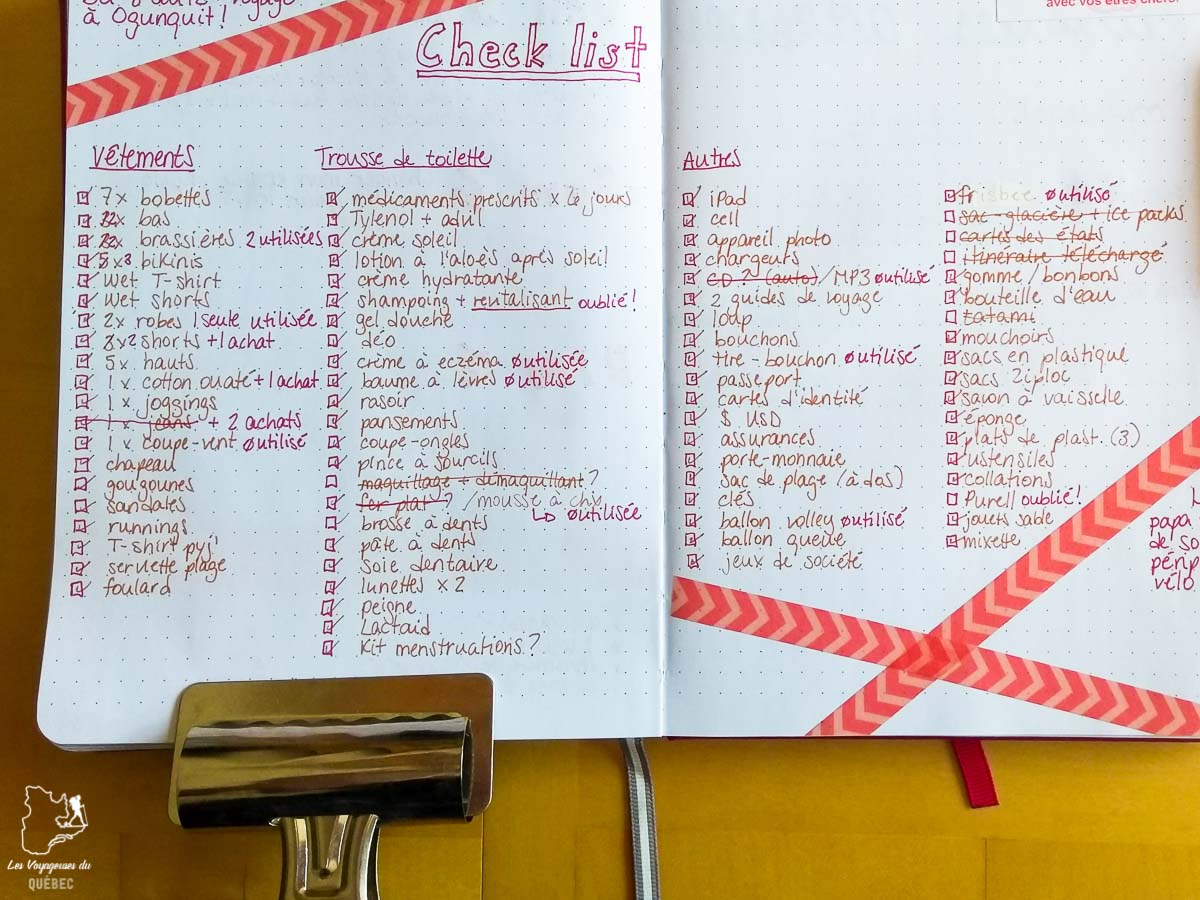 à Ogunquit!
avec vos êtres chers.
Check list
Vêtements
7x bobettes
bas
brassières 2 utilisées
bikinis
Wet T-shirt
Wet shorts
2x robes 1 seule utilisée
shorts + 1 achat
5x hauts
1x cotton ouaté + 1 achat
1x joggings
1x jeans + 2 achats
1x coupe-vent øutilisé
chapeau
gougounes
sandales
runnings
T-shirt pyj
serviette plage
foulard
Trousse de toilette
médicaments prescrits x 6 jours
Tylenol + advil
crème soleil
lotion à l'aloès après soleil
crème hydratante
shampoing + revitalisant oublié!
gel douche
déo
crème à eczéma øutilisée
baume à lèvres øutilisé
rasoir
pansements
coupe-ongles
pince à sourcils
maquillage + démaquillant?
fer plat? /mousse à chx
↳ øutilisée
brosse à dents
pâte à dents
soie dentaire
lunettes x 2
peigne
Lactaid
Kit menstruations?
Autres
iPad
cell
appareil photo
chargeurs
CD ~ (auto) /MP3 øutilisé
2 guides de voyage
loup
bouchons
tire-bouchon øutilisé
passeport
cartes d'identité
$ USD
assurances
porte-monnaie
sac de plage (à dos)
clés
ballon volley øutilisé
ballon queue
jeux de société
frisbee øutilisé
sac-glacière + ice packs
cartes des états
itinéraire téléchargé
gomme/bonbons
bouteille d'eau
tatami
mouchoirs
sacs en plastique
sacs Ziploc
savon à vaisselle
éponge
plats de plast. (3)
ustensiles
collations
Purell oublié!
jouets sable
mixette
papa
de so
périp
vélo
Les Voyageuses du
QUÉBEC